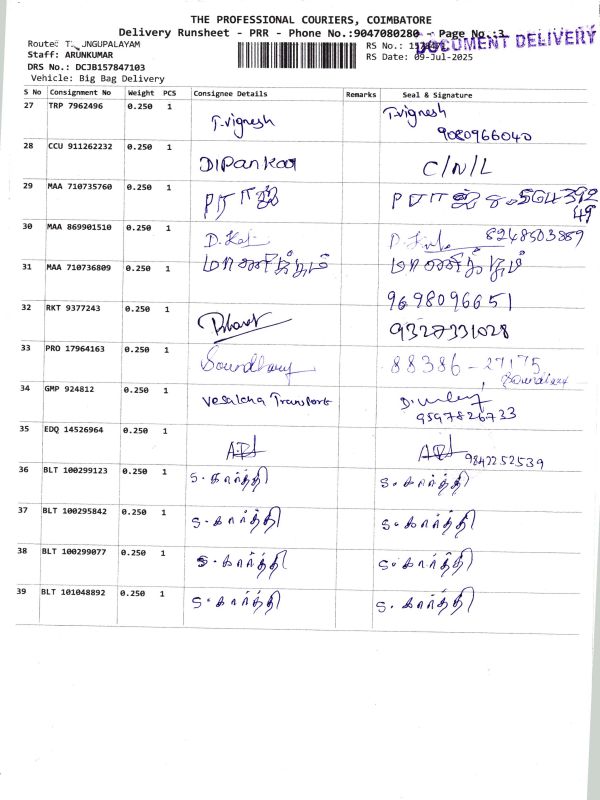 THE PROFESSIONAL COURIERS, COIMBATORE
Delivery Runsheet - PRR - Phone No.:9047080280 - Page No.:3
DOCUMENT DELIVERY
Staff: ARUNKUMAR
RS Date: 09-Jul-2025
DRS No.: DCJB157847103
Vehicle: Big Bag Delivery
S No Consignment No Weight PCS Consignee Details Remarks Seal & Signature
27 TRP 7962496 0.250 1 T.vignesh T.vignesh
9080966040
28 CCU 911262232 0.250 1 DIPankar C/N/L
29 MAA 710735760 0.250 1
30 MAA 869901510 0.250 1 8248503869
31 MAA 710736809 0.250 1
9698096651
32 RKT 9377243 0.250 1 Bharat 9327331028
33 PRO 17964163 0.250 1 88386-27175
34 GMP 924812 0.250 1 Transport
9597826733
35 EDQ 14526964 0.250 1 9842252539
36 BLT 100299123 0.250 1 S.கார்த்தி S.கார்த்தி
37 BLT 100295842 0.250 1 S.கார்த்தி S.கார்த்தி
38 BLT 100299077 0.250 1 S.கார்த்தி S.கார்த்தி
39 BLT 101048892 0.250 1 S.கார்த்தி S.கார்த்தி